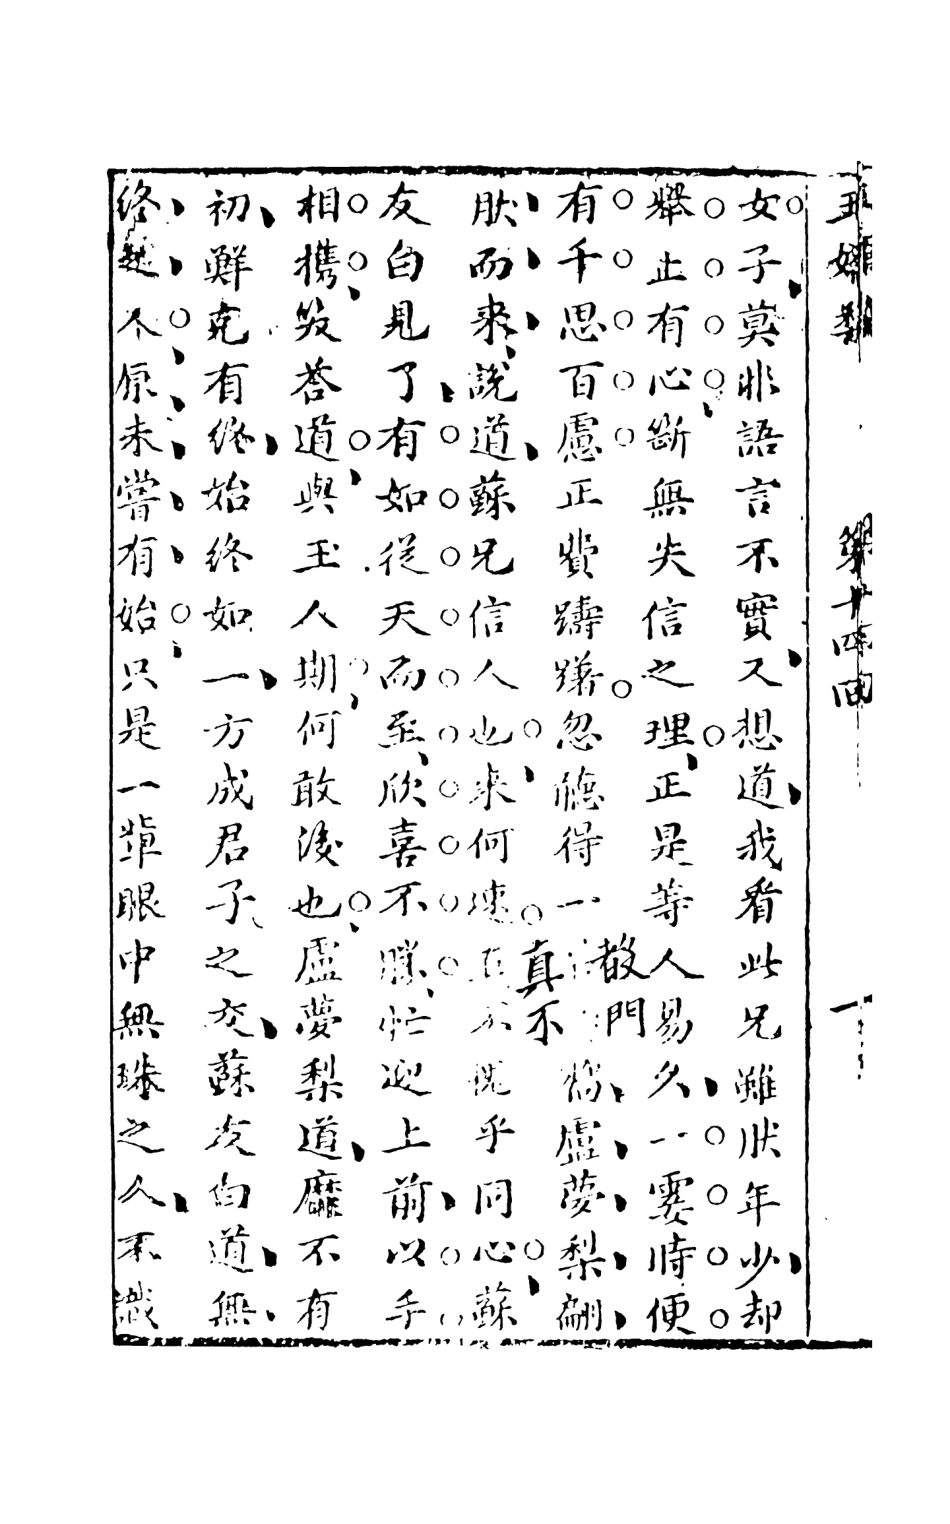 玉嬌梨 第十四回 一
女子莫非語言不實又想道我看此兄雖狀年少却
舉止有心斷無失信之理正是等人易久一霎時便
有千思百慮正費躊躇忽聽得一 盧夢梨翩
肰而來說道蘇兄信人也來何速 真不愧乎同心蘇
友白見了有如從天而至欣喜不勝忙迎上前以手
相攜笑荅道與玉人期何敢後也盧夢梨道靡不有
初鮮克有終始終如一方成君子之交蘇友白道無
終之人原未嘗有始只是一輩眼中無珠之人不識
教門